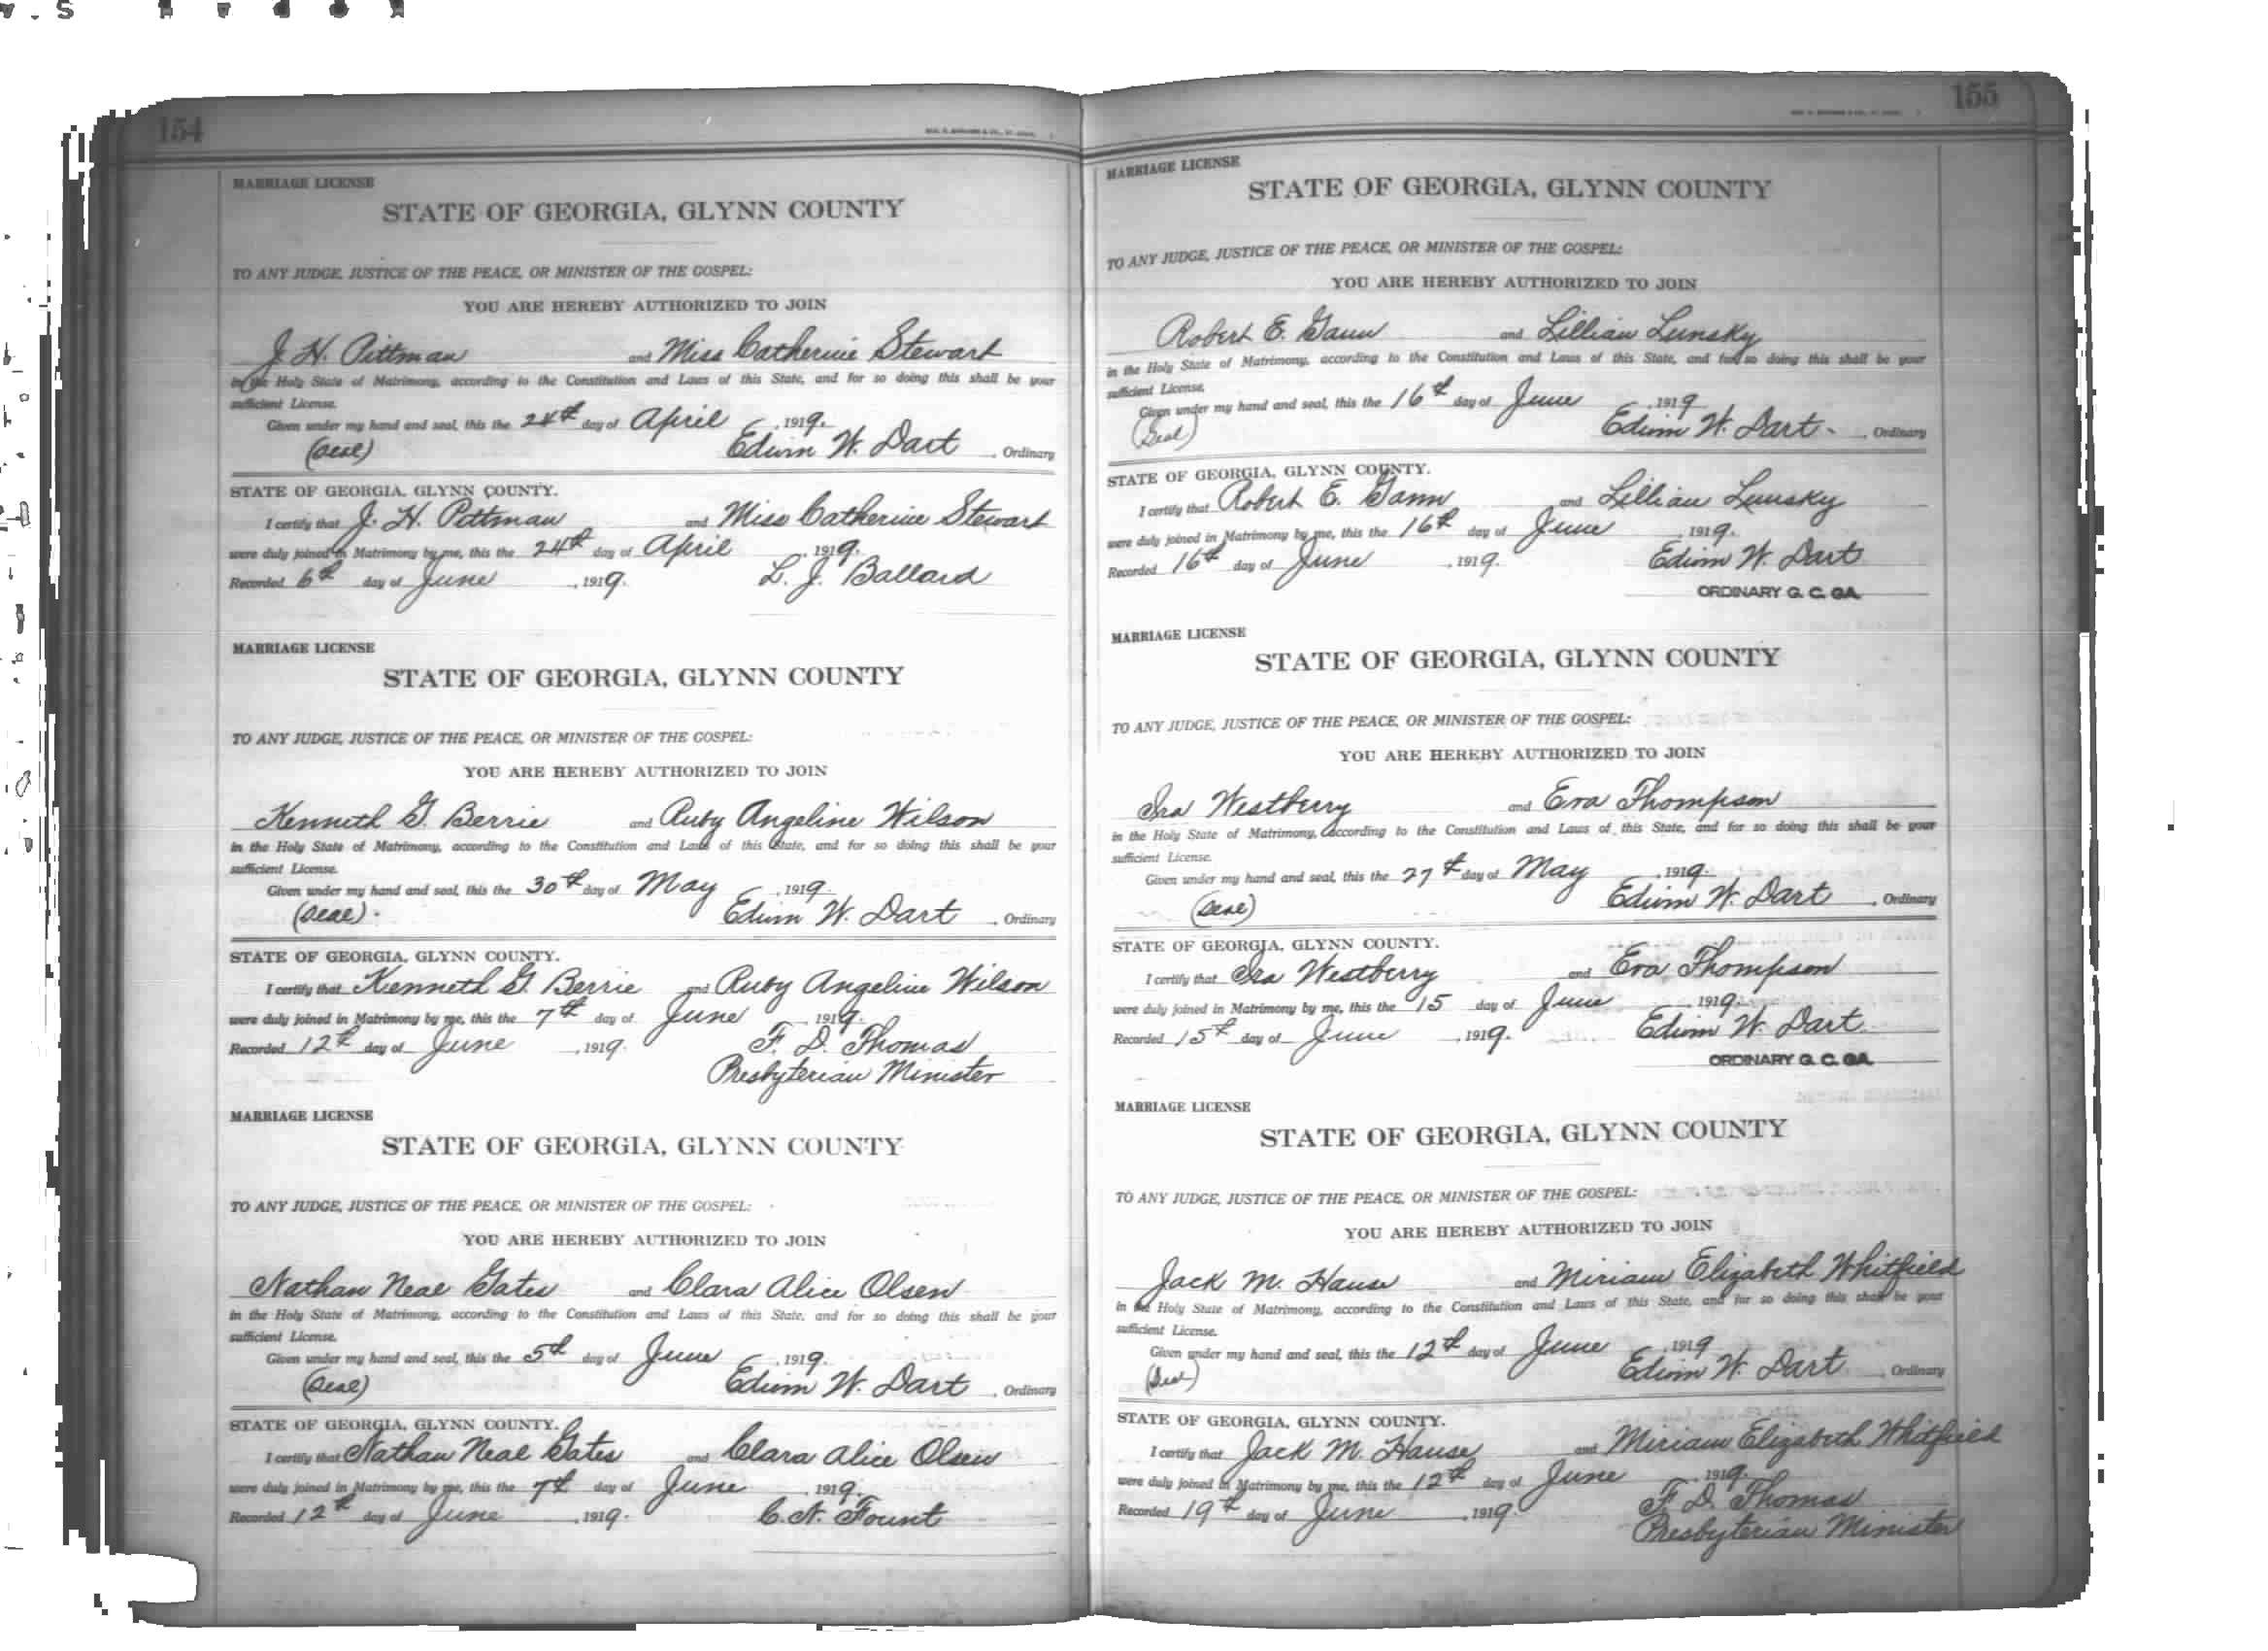 154
MARRIAGE LICENSE
STATE OF GEORGIA, GLYNN COUNTY
TO ANY JUDGE, JUSTICE OF THE PEACE, OR MINISTER OF THE GOSPEL:
YOU ARE HEREBY AUTHORIZED TO JOIN
J. H. Pittman and Miss Catherine Stewart
in the Holy State of Matrimony, according to the Constitution and Laws of this State, and for so doing this shall be your
sufficient License.
Given under my hand and seal, this the 24th day of April, 1919.
(Seal) Edwin W. Dart, Ordinary
STATE OF GEORGIA, GLYNN COUNTY.
I certify that J. H. Pittman and Miss Catherine Stewart
were duly joined in Matrimony by me, this the 24th day of April, 1919.
Recorded 6th day of June, 1919. L. J. Ballard
MARRIAGE LICENSE
STATE OF GEORGIA, GLYNN COUNTY
TO ANY JUDGE, JUSTICE OF THE PEACE, OR MINISTER OF THE GOSPEL:
YOU ARE HEREBY AUTHORIZED TO JOIN
Kenneth G. Berrie and Ruby Angeline Wilson
in the Holy State of Matrimony, according to the Constitution and Laws of this State, and for so doing this shall be your
sufficient License.
Given under my hand and seal, this the 30th day of May, 1919.
(Seal). Edwin W. Dart, Ordinary
STATE OF GEORGIA, GLYNN COUNTY.
I certify that Kenneth G. Berrie and Ruby Angeline Wilson
were duly joined in Matrimony by me, this the 7th day of June, 1919.
Recorded 12th day of June, 1919. F. D. Thomas
Presbyterian Minister
MARRIAGE LICENSE
STATE OF GEORGIA, GLYNN COUNTY
TO ANY JUDGE, JUSTICE OF THE PEACE, OR MINISTER OF THE GOSPEL:
YOU ARE HEREBY AUTHORIZED TO JOIN
Nathan Neal Gates and Clara Alice Olsen
in the Holy State of Matrimony, according to the Constitution and Laws of this State, and for so doing this shall be your
sufficient License.
Given under my hand and seal, this the 5th day of June, 1919.
(Seal) Edwin W. Dart, Ordinary
STATE OF GEORGIA, GLYNN COUNTY.
I certify that Nathan Neal Gates and Clara Alice Olsen
were duly joined in Matrimony by me, this the 7th day of June, 1919.
Recorded 12th day of June, 1919. C. N. Fount
155
MARRIAGE LICENSE
STATE OF GEORGIA, GLYNN COUNTY
TO ANY JUDGE, JUSTICE OF THE PEACE, OR MINISTER OF THE GOSPEL:
YOU ARE HEREBY AUTHORIZED TO JOIN
Robert E. Gann and Lillian Lunsky
in the Holy State of Matrimony, according to the Constitution and Laws of this State, and for so doing this shall be your
sufficient License.
Given under my hand and seal, this the 16th day of June, 1919
(Seal) Edwin W. Dart, Ordinary
STATE OF GEORGIA, GLYNN COUNTY.
I certify that Robert E. Gann and Lillian Lunsky
were duly joined in Matrimony by me, this the 16th day of June, 1919.
Recorded 16th day of June, 1919. Edwin W. Dart
ORDINARY G. C. GA.
MARRIAGE LICENSE
STATE OF GEORGIA, GLYNN COUNTY
TO ANY JUDGE, JUSTICE OF THE PEACE, OR MINISTER OF THE GOSPEL:
YOU ARE HEREBY AUTHORIZED TO JOIN
Ira Westberry and Eva Thompson
in the Holy State of Matrimony, according to the Constitution and Laws of this State, and for so doing this shall be your
sufficient License.
Given under my hand and seal, this the 27th day of May, 1919.
(Seal) Edwin W. Dart, Ordinary
STATE OF GEORGIA, GLYNN COUNTY.
I certify that Ira Westberry and Eva Thompson
were duly joined in Matrimony by me, this the 15 day of June, 1919.
Recorded 15th day of June, 1919. Edwin W. Dart
ORDINARY G. C. GA.
MARRIAGE LICENSE
STATE OF GEORGIA, GLYNN COUNTY
TO ANY JUDGE, JUSTICE OF THE PEACE, OR MINISTER OF THE GOSPEL:
YOU ARE HEREBY AUTHORIZED TO JOIN
Jack M. Hause and Miriam Elizabeth Whitfield
in the Holy State of Matrimony, according to the Constitution and Laws of this State, and for so doing this shall be your
sufficient License.
Given under my hand and seal, this the 12th day of June, 1919
(Seal) Edwin W. Dart, Ordinary
STATE OF GEORGIA, GLYNN COUNTY.
I certify that Jack M. Hause and Miriam Elizabeth Whitfield
were duly joined in Matrimony by me, this the 12th day of June, 1919.
Recorded 19th day of June, 1919. F. D. Thomas
Presbyterian Minister